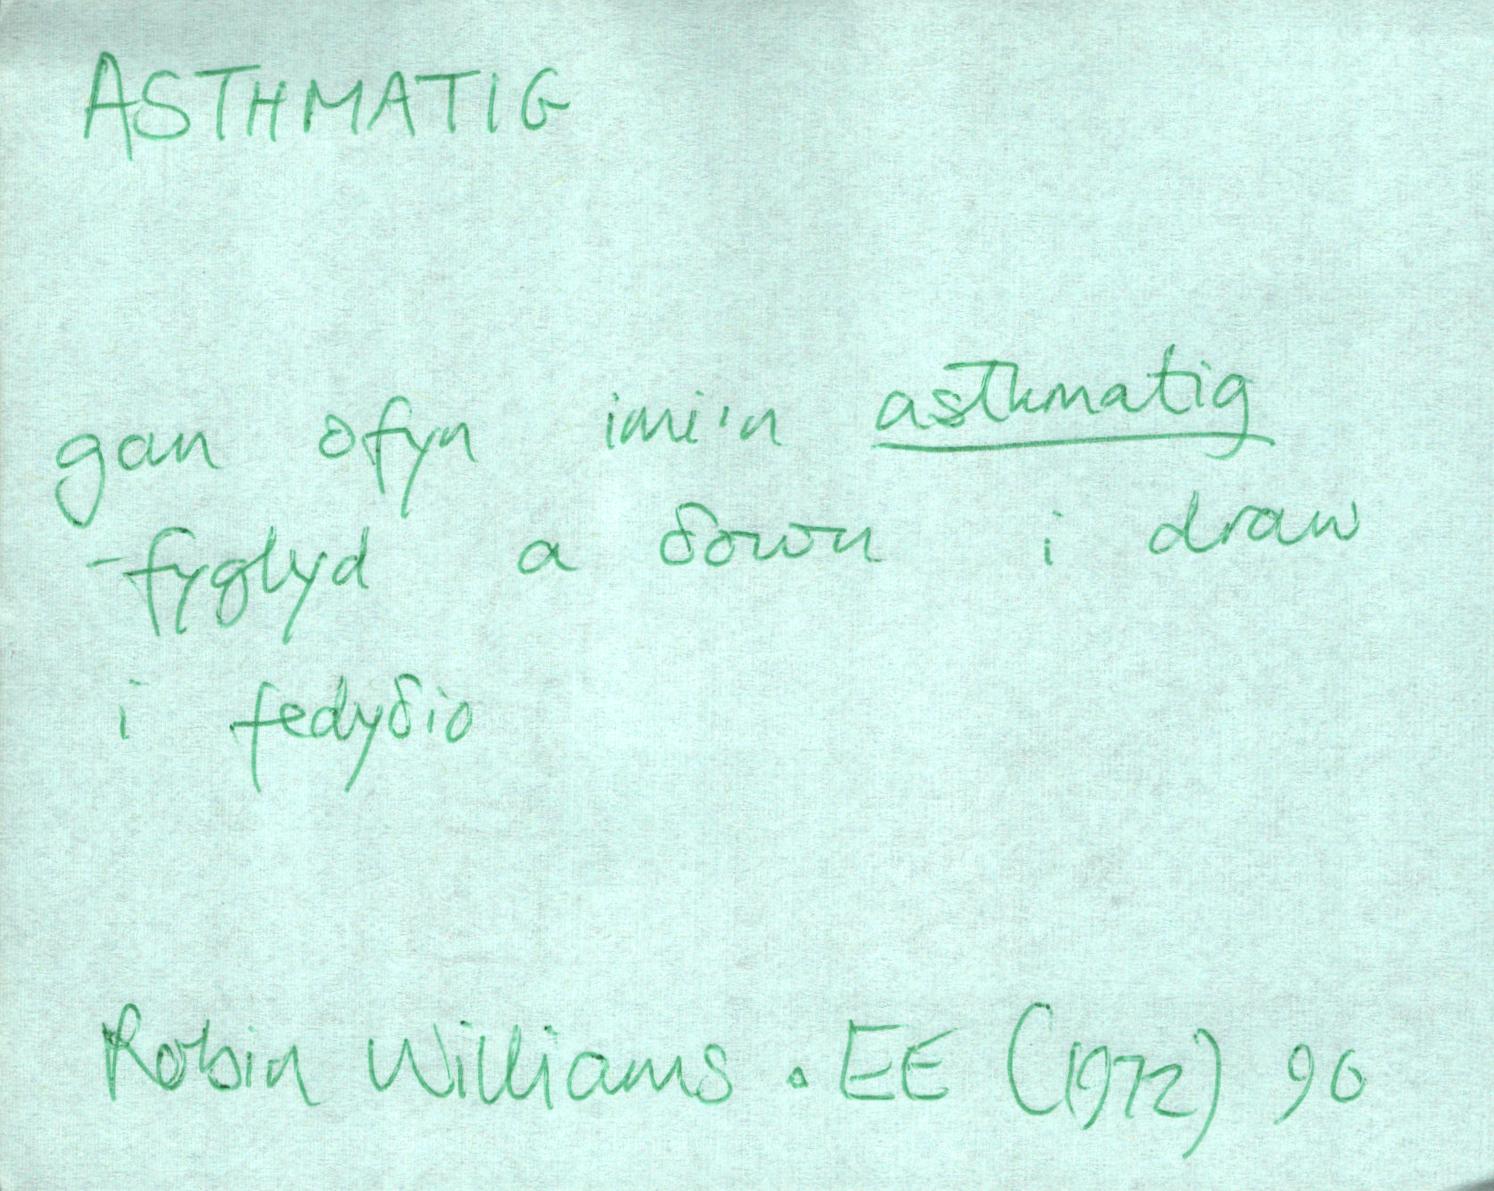 ASTHMATIG
gan ofyn imi'n asthmatig
-fyglyd a δown i draw
i fedyδio
Robin Williams . EE (1972) 90